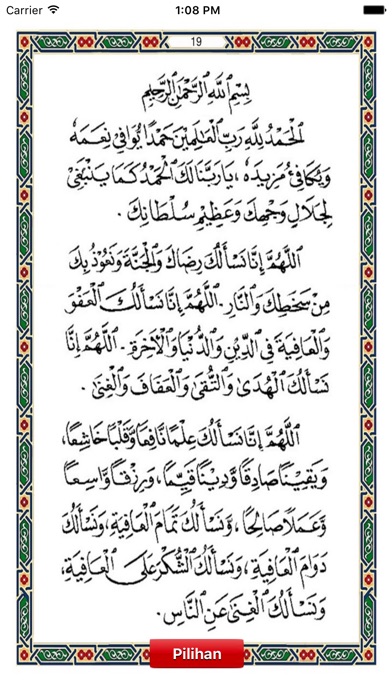 Carrier 1:08 PM
19
بِسْمِ اللَّهِ الرَّحْمٰنِ الرَّحِيْمِ
اَلْحَمْدُ لِلَّهِ رَبِّ الْعَالَمِيْنَ حَمْدًا يُوَافِيْ نِعَمَهُ
وَيُكَافِئُ مَزِيْدَهُ ، يَا رَبَّنَا لَكَ الْحَمْدُ كَمَا يَنْبَغِيْ
لِجَلَالِ وَجْهِكَ وَعَظِيْمِ سُلْطَانِكَ .
اَللَّهُمَّ إِنَّا نَسْأَلُكَ رِضَاكَ وَالْجَنَّةَ وَنَعُوْذُ بِكَ
مِنْ سَخَطِكَ وَالنَّارِ . اَللَّهُمَّ إِنَّا نَسْأَلُكَ الْعَفْوَ
وَالْعَافِيَةَ فِي الدِّيْنِ وَالدُّنْيَا وَالْآخِرَةِ . اَللَّهُمَّ إِنَّا
نَسْأَلُكَ الْهُدَى وَالتُّقَى وَالْعَفَافَ وَالْغِنَى .
اَللَّهُمَّ إِنَّا نَسْأَلُكَ عِلْمًا نَافِعًا وَقَلْبًا خَاشِعًا ،
وَيَقِيْنًا صَادِقًا وَدِيْنًا قَيِّمًا ، وَرِزْقًا وَاسِعًا
وَعَمَلًا صَالِحًا ، وَنَسْأَلُكَ تَمَامَ الْعَافِيَةِ ، وَنَسْأَلُكَ
دَوَامَ الْعَافِيَةِ ، وَنَسْأَلُكَ الشُّكْرَ عَلَى الْعَافِيَةِ ،
وَنَسْأَلُكَ الْغِنَى عَنِ النَّاسِ .
Pilihan